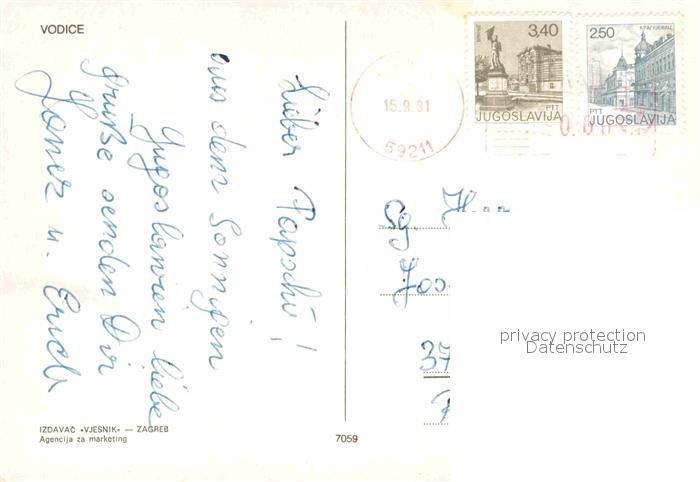 VODICE
Lieber Papschi!
aus dem Sonnigen
Jugoslawien liebe
Grüße senden Dir
u. Erich
IZDAVAČ »VJESNIK« — ZAGREB
Agencija za marketing
7059
15.9.81
59211
3,40
PTT
JUGOSLAVIJA
2,50
КРАГУЈЕВАЦ
PTT
JUGOSLAVIJA
Sg. Herr
Jos
37
privacy protection
Datenschutz